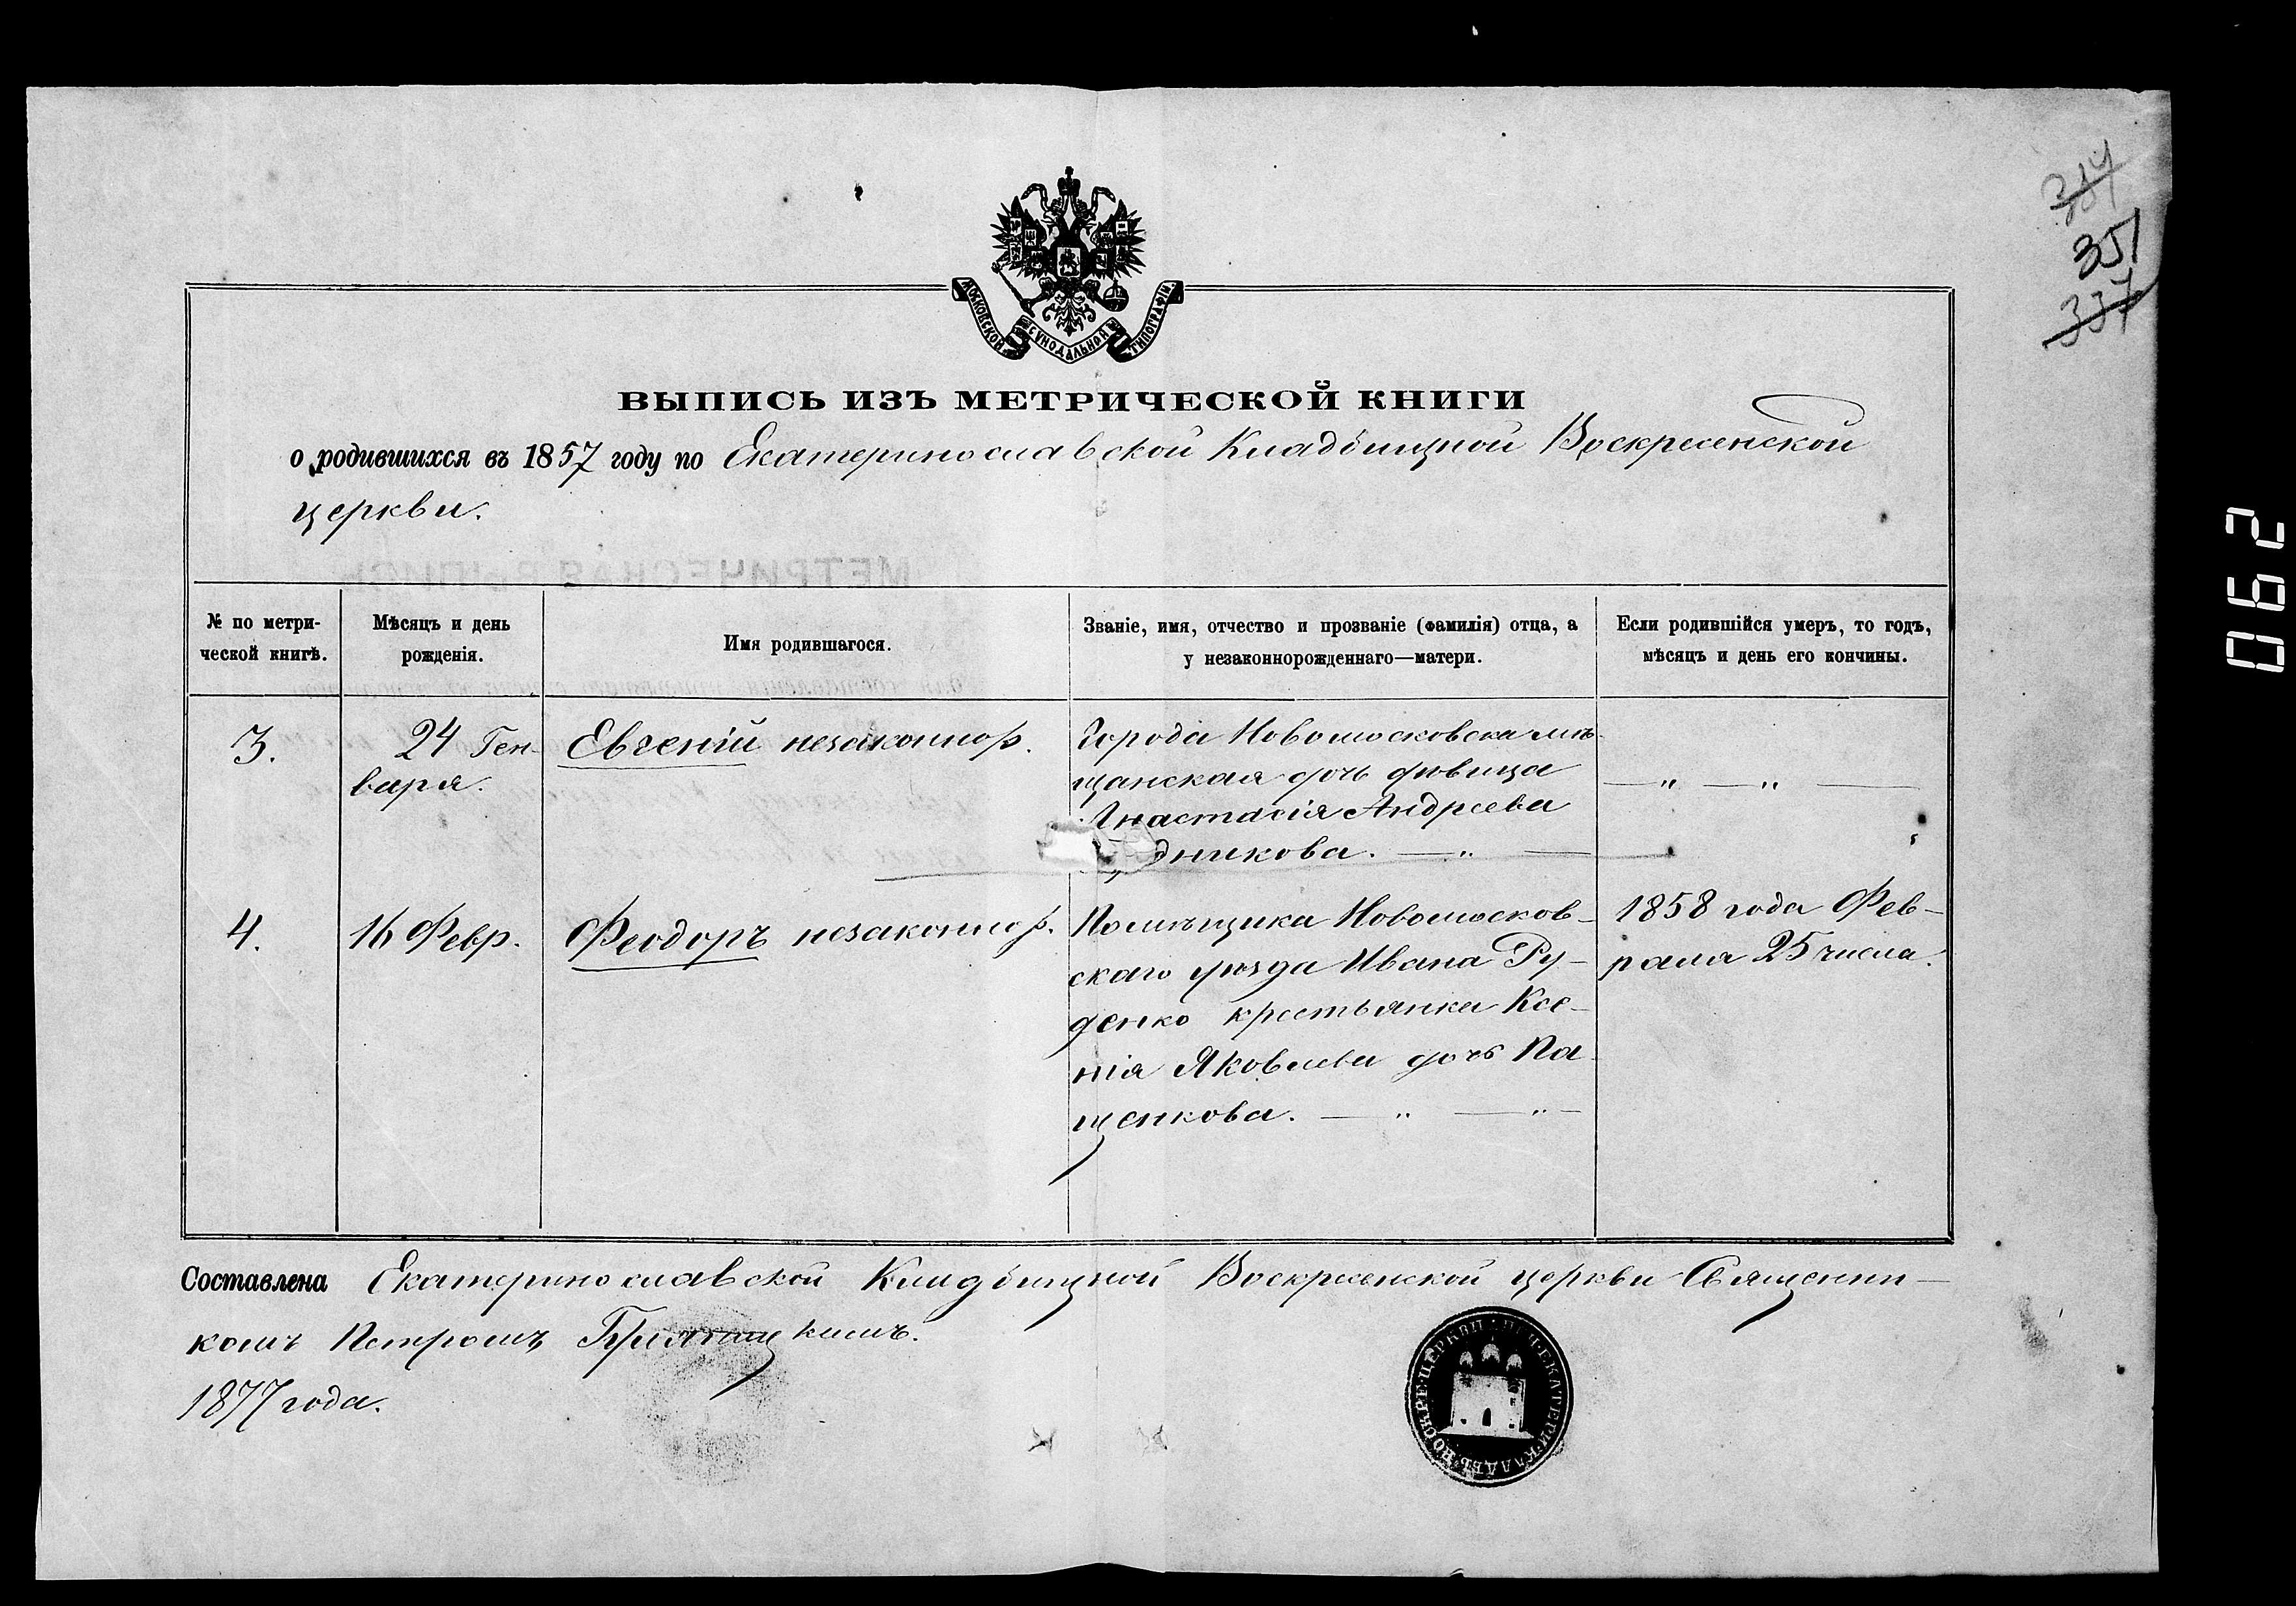 337
351
337
МОСКОВСКОЙ СУНОДАЛЬНОЙ ТИПОГРАФІИ.
ВЫПИСЬ ИЗЪ МЕТРИЧЕСКОЙ КНИГИ
о родившихся въ 1857 году по Екатеринославской Кладбищной Воскресенской
церкви.
№ по метри-
ческой книгѣ.
Мѣсяцъ и день
рожденія.
Имя родившагося.
Званіе, имя, отчество и прозваніе (фамилія) отца, а
у незаконнорожденнаго—матери.
Если родившійся умеръ, то годъ,
мѣсяцъ и день его кончины.
3.
24 Ген-
варя.
Евгеній незаконнор.
Города Новомосковска мѣ-
щанская дочь дѣвица
Анастасія Андреева
дникова. — „ —
— „ — „ —
4.
16 Февр.
Феодоръ незаконнор.
Помѣщика Новомосков-
скаго уѣзда Ивана Ру-
денко крестьянка Ксе-
нія Яковлева дочь Па-
щенкова. — „ — „ —
1858 года Фев-
раля 25 числа.
Составлена Екатеринославской Кладбищной Воскресенской церкви Священни-
комъ Петромъ
1877 года.
062